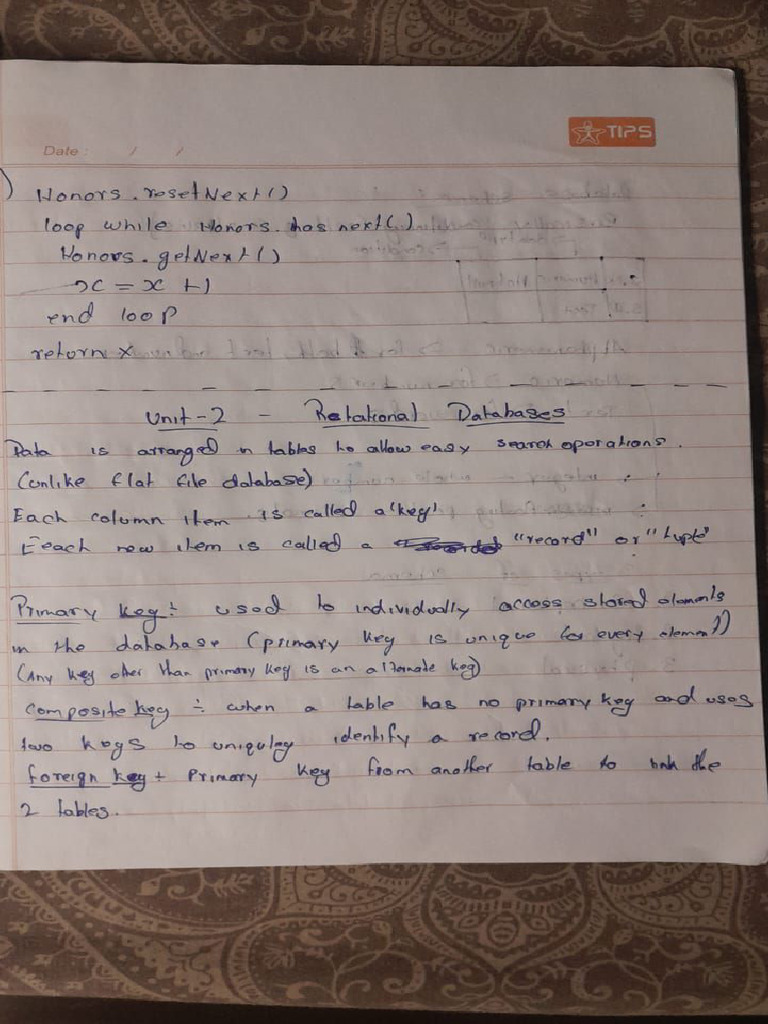 TIPS
Date : / /
) Honors.resetNext()
loop while Honors.hasnext(.)
Honors.getNext()
x = x +1
end loop
return x
Unit-2 - Relational Databases
Data is arranged in tables to allow easy search operations.
(unlike flat file database)
Each column item is called a 'key'
Eeach row item is called a "record" or "tuple"
Primary key : used to individually access stored elements
in the database (primary key is unique for every element))
(Any key other than primary key is an alternate key)
composite key : when a table has no primary key and uses
two keys to uniquley identify a record.
foreign key : Primary key from another table to link the
2 tables.